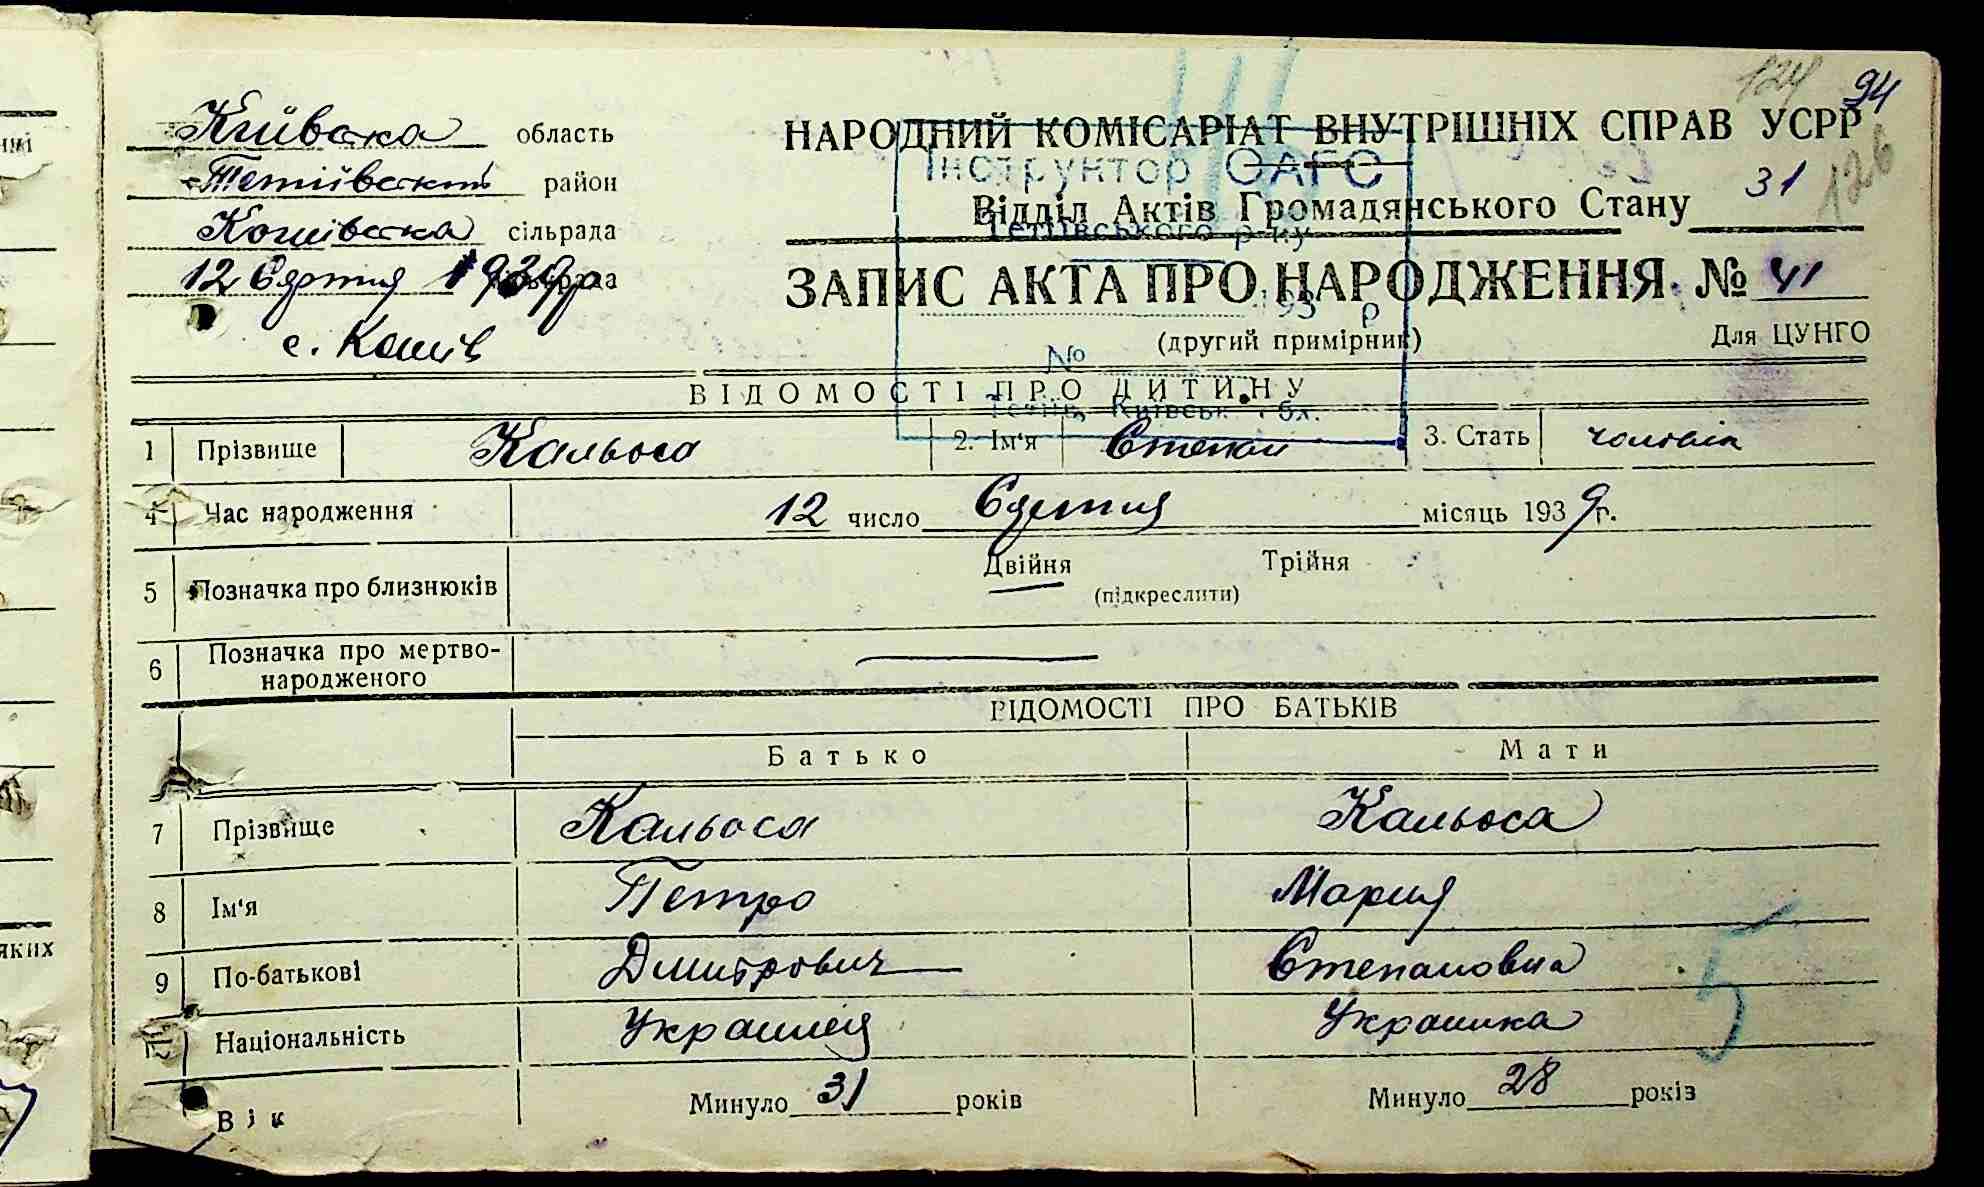 124 94
Київська область
НАРОДНИЙ КОМІСАРІАТ ВНУТРІШНІХ СПРАВ УСРР
126
Інструктор ОАГС
Тетіївський район
31
Відділ Актів Громадянського Стану
Кошівська сільрада
Тетіївського р-ку
12 Серпня 1939р
ЗАПИС АКТА ПРО НАРОДЖЕННЯ № 41
193 р
с. Кошів
(другий примірник)
Для ЦУНГО
№
ВІДОМОСТІ ПРО ДИТИНУ
1 Прізвище Кальоса 2. Ім'я Степан 3. Стать чоловіч
4 Час народження 12 число Серпня місяць 1939 р.
5 Позначка про близнюків Двійня Трійня
(підкреслити)
6 Позначка про мертво-
народженого
ВІДОМОСТІ ПРО БАТЬКІВ
Батько Мати
7 Прізвище Кальоса Кальоса
8 Ім'я Петро Мария
9 По-батькові Дмитрович Степановна
Національність Украинец Украинка
5
Вік Минуло 31 років Минуло 28 років
яких